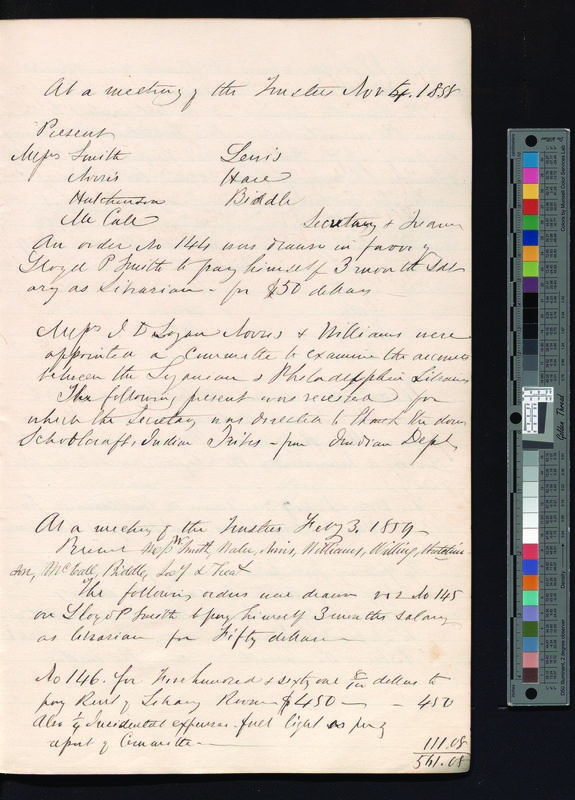 At a meeting of the Trustees Nov 4. 1858
Present
Messrs Smith Lewis
Norris Hare
Hutchinson Biddle
Mc Call Secretary & Treasurer
An order No 144 was drawn in favor of
Lloyd P Smith to pay himself 3 month Sal
ary as Librarian - for $50 dollars
Messrs J D Logan Norris & Williams were
appointed a Committee to examine the accounts
between the Loganian & Philadelphia Libraries
The following present was received for
which the Secretary was directed to thank the donor
Schoolcrafts Indian Tribes - from Indian Dept
At a meeting of the Trustees Feby 3. 1859 -
Present Messrs Smith, Norris, Williams, Willing, Hutchin
son, McCall, Biddle, Secy & Treas
The following orders were drawn viz No 145
on Lloyd P Smith to pay himself 3 months salary
as librarian for Fifty dollars
No 146. for Five hundred & sixty one 08/100 dollars to
pay Rent of Library Room $450 - - 450
Also 1/4 Incidental expenses - fuel light as per
report of Committee - 111.08
561.08